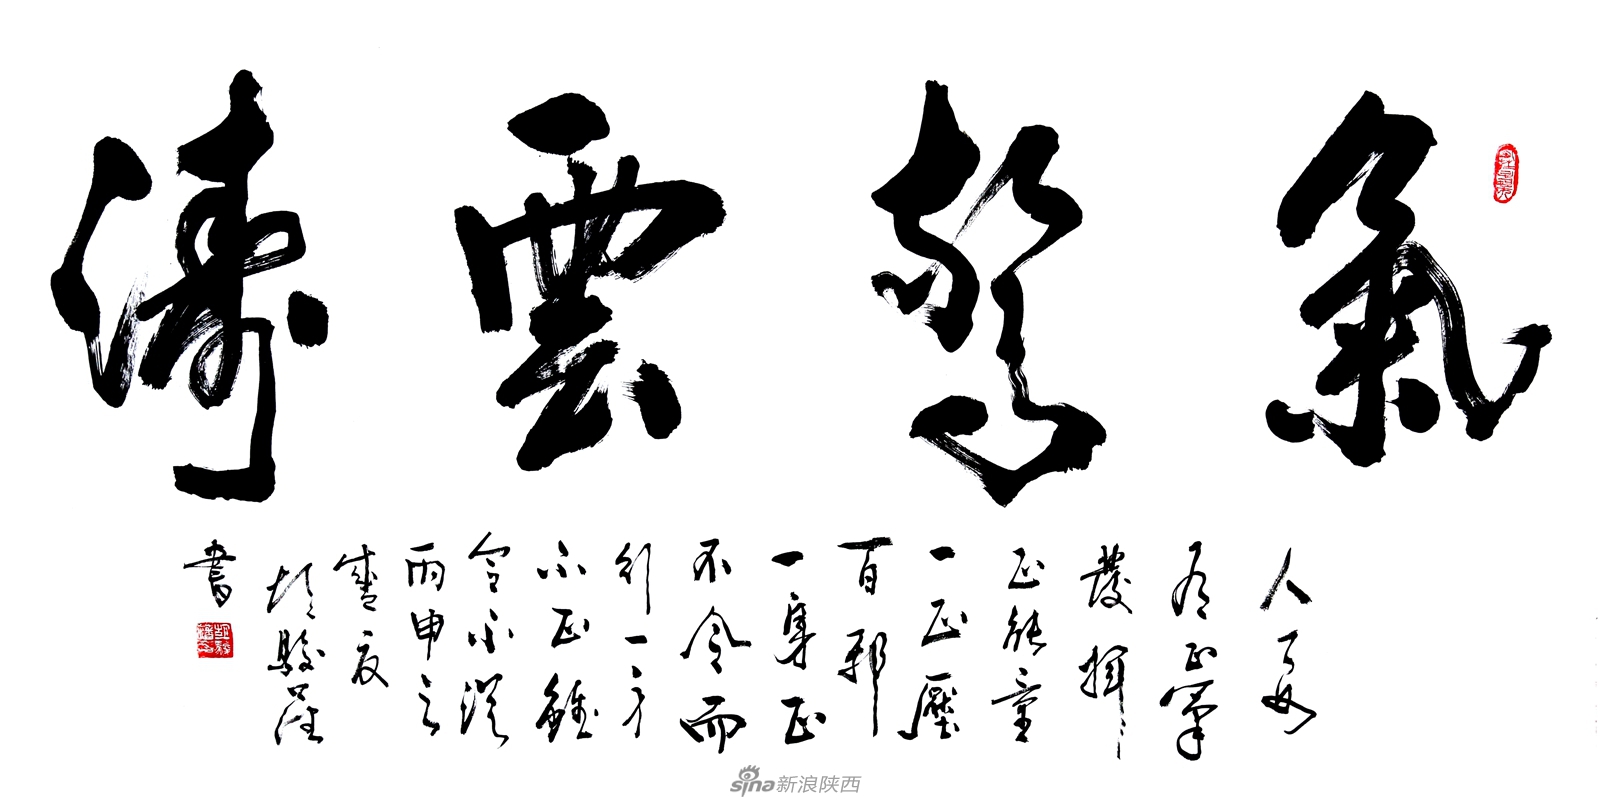 氣驚雲濤
人要
有正氣
發揮
正能量
一正壓
百邪
一身正
不令而
行一身
不正雖
令不從
丙申之
盛夏
胡
書
sina新浪陕西